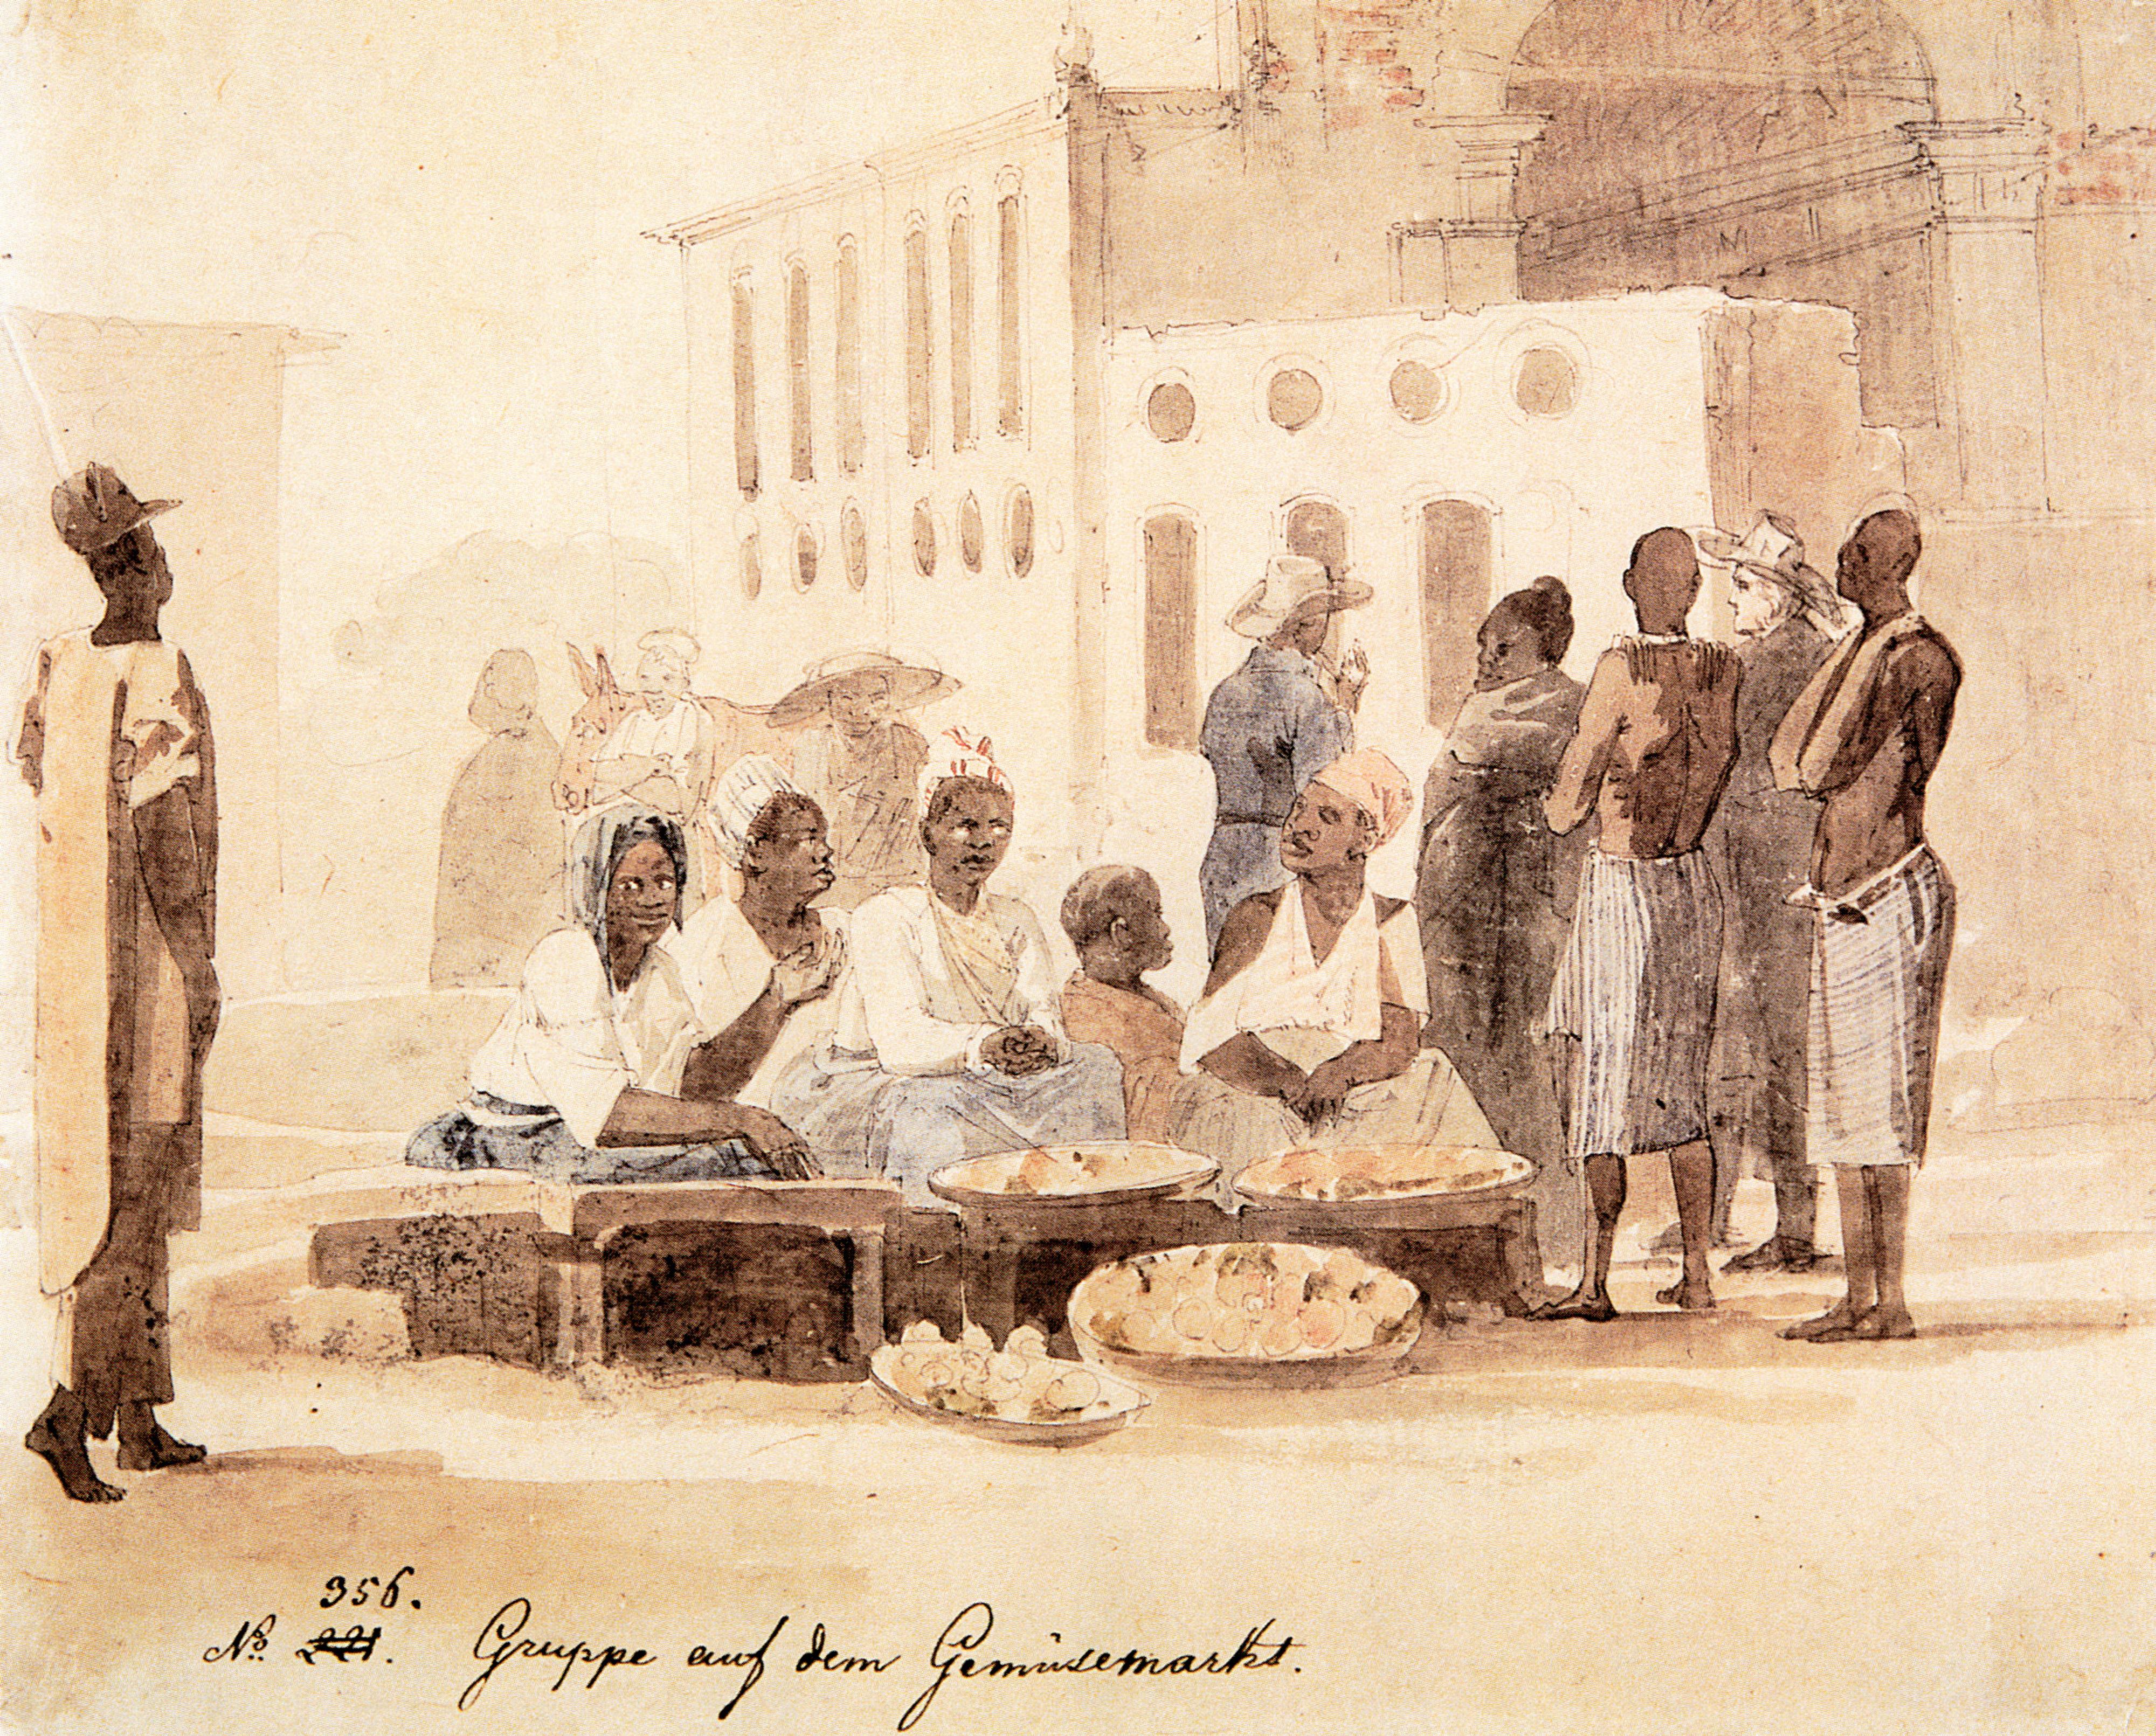 356.
No. 221. Gruppe auf dem Gemüsemarkt.